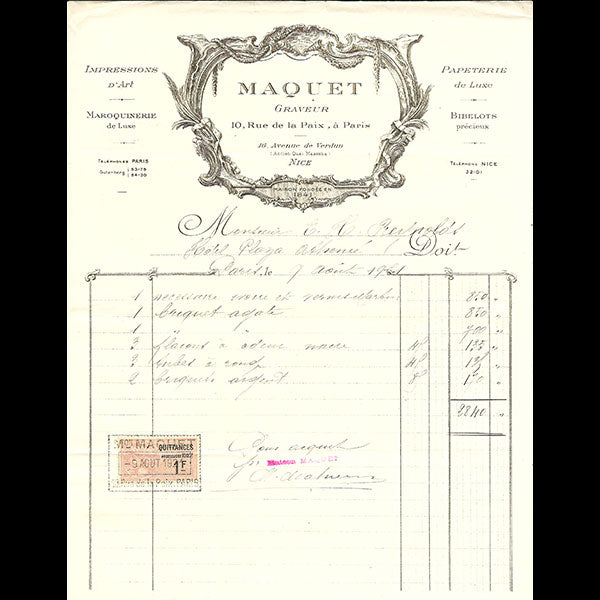 IMPRESSIONS
D'Art
MAROQUINERIE
de Luxe
TÉLÉPHONES PARIS
Gutenberg 53-79
84-30
MAQUET
GRAVEUR
10, Rue de la Paix, à Paris
16, Avenue de Verdun
(Ancien Quai Masséna)
NICE
MAISON FONDÉE EN
1841
PAPETERIE
de Luxe
BIBELOTS
précieux
TÉLÉPHONE NICE
32-01
Monsieur E. H. Reynolds
Hôtel Plaza Athénée Doit
Paris, le 9 août
1 nécessaire nacre et 850 "
1 briquet agate 850 "
1 " " 700 "
3 flacons à odeur nacre 135 "
3 "
2 briquets argent "
2840 "
Mon MAQUET
QUITTANCES
1F
-9 AOUT 192
10 Rue de la Paix PARIS
Pour acquit
Maison MAQUET